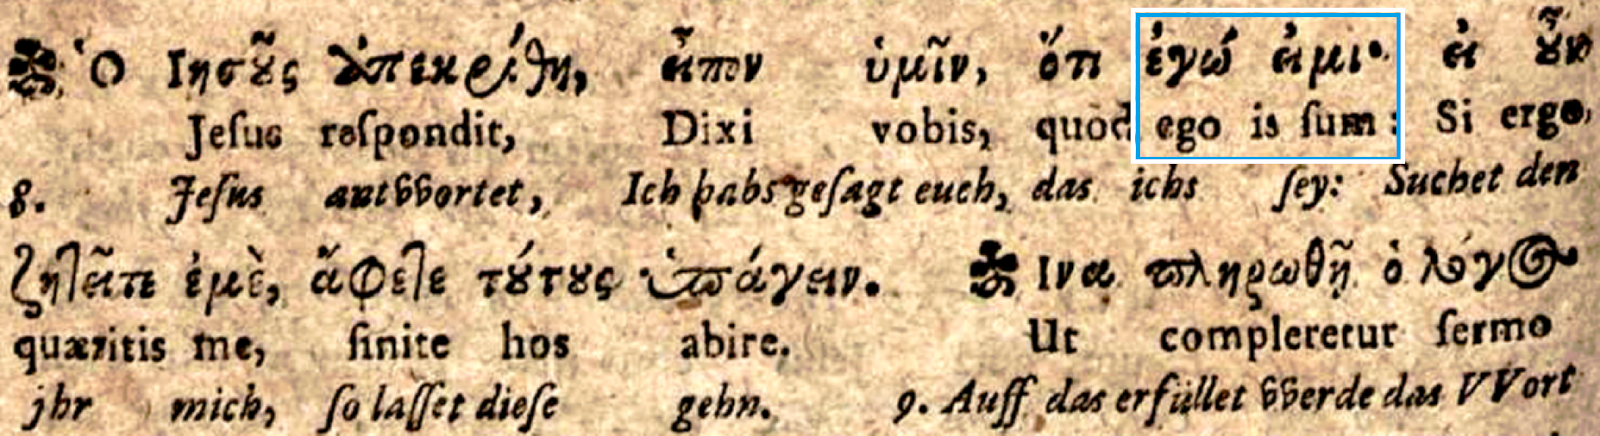 Ὁ Ιησοῦς ἀπεκρίθη, εἶπον ὑμῖν, ὅτι ἐγώ εἰμι· εἰ οὖν
Jeſus reſpondit, Dixi vobis, quod ego is ſum: Si ergo,
8. Jeſus antVVortet, Ich habs geſagt euch, das ichs ſey: Suchet den
ζητεῖτε ἐμὲ, ἄφετε τούτους ὑπάγειν. Ινα πληρωθῇ ὁ λόγος
quæritis me, ſinite hos abire. Ut compleretur ſermo
jhr mich, ſo laſſet dieſe gehn. 9. Auff das erfüllet VVerde das VVort